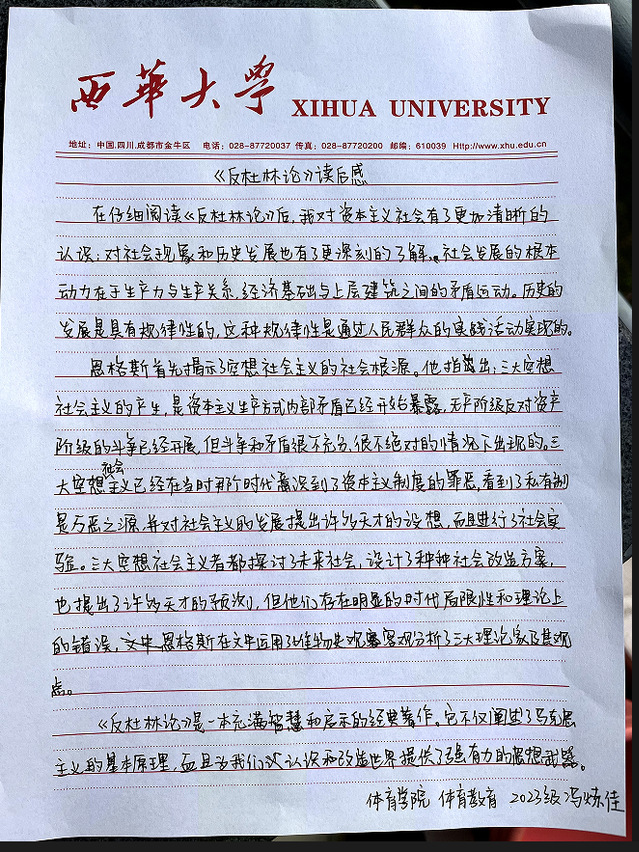 西華大学
XIHUA UNIVERSITY
地址：中国.四川.成都市金牛区 电话：028-87720037 传真：028-87720200 邮编：610039 Http://www.xhu.edu.cn
《反杜林论》读后感
在仔细阅读《反杜林论》后，我对资本主义社会有了更加清晰的
认识；对社会现象和历史发展也有了更深刻的了解。社会发展的根本
动力在于生产力与生产关系、经济基础与上层建筑之间的矛盾运动。历史的
发展是具有规律性的，这种规律性是通过人民群众的实践活动实现的。
恩格斯首先揭示了空想社会主义的社会根源。他指出：三大空想
社会主义的产生，是资本主义生产方式内部矛盾已经开始暴露，无产阶级反对资产
阶级的斗争已经开展，但斗争和矛盾很不充分、很不绝对的情况下出现的。三
大空想社会主义已经在当时那个时代意识到了资本主义制度的罪恶，看到了私有制
是万恶之源，并对社会主义的发展提出许多天才的设想，而且进行了社会实
验。三大空想社会主义者都探讨了未来社会，设计了种种社会改造方案，
也提出了许多天才的预测，但他们存在明显的时代局限性和理论上
的错误，恩格斯在文中运用了唯物史观客观分析了三大理论家及其观
点。
《反杜林论》是一本充满智慧和启示的经典著作。它不仅阐述了马克思
主义的基本原理，而且为我们认识和改造世界提供了强有力的思想武器。
体育学院 体育教育 2023级冯炼佳